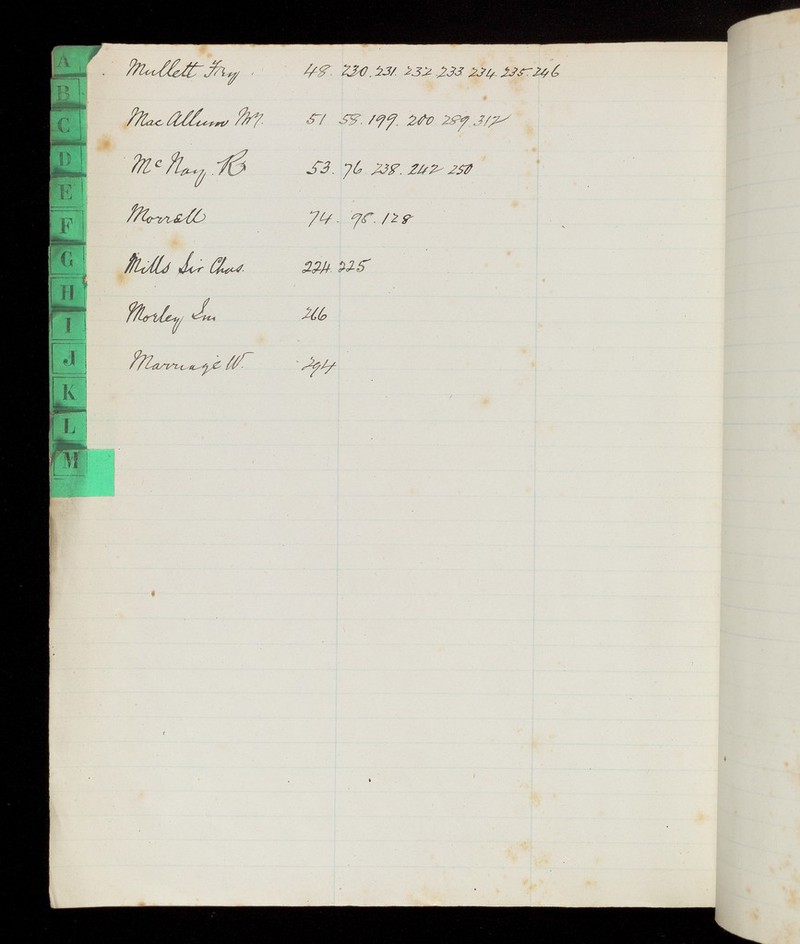 A
B
C
D
E
F
G
H
I
J
K
L
M
Mullett Fry 48. 230. 231. 232 233 234. 235. 246
Mac Allum 51 58. 199. 200 289. 312
Mc Nay. R 53. 76. 238. 242 250
Morrell 74. 98. 128
Mills Sir Chas. 224. 225
Morley 266
Marriage W. 294